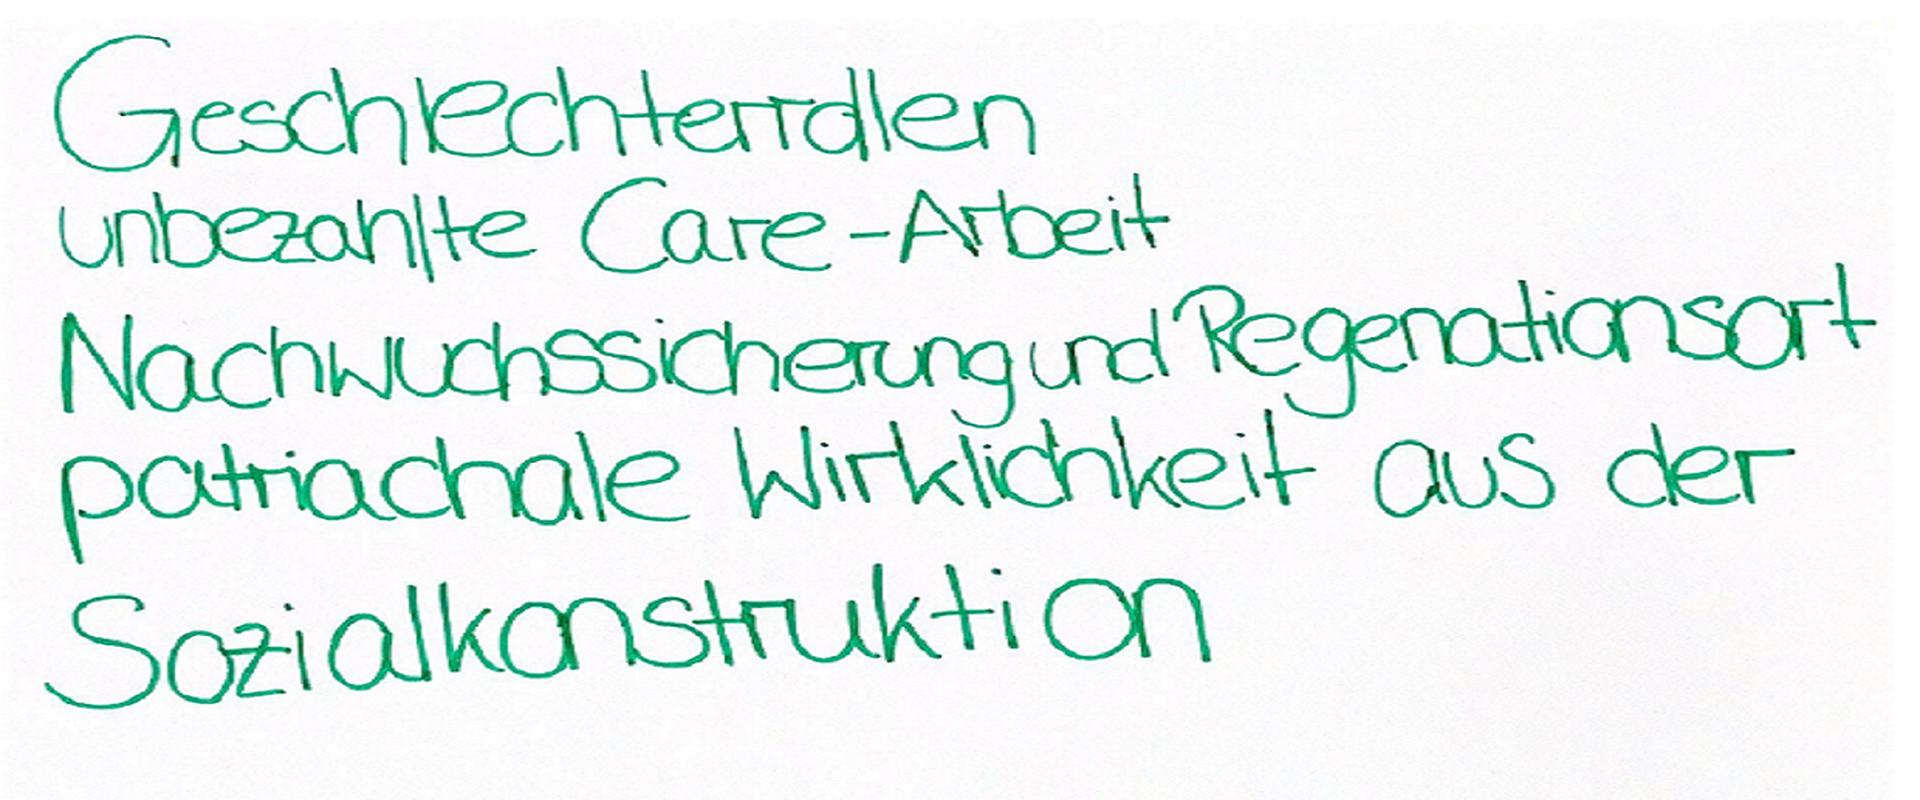 Geschlechterrollen
unbezahlte Care-Arbeit
Nachwuchssicherung und Regenationsort
patriachale Wirklichkeit aus der
Sozialkonstruktion